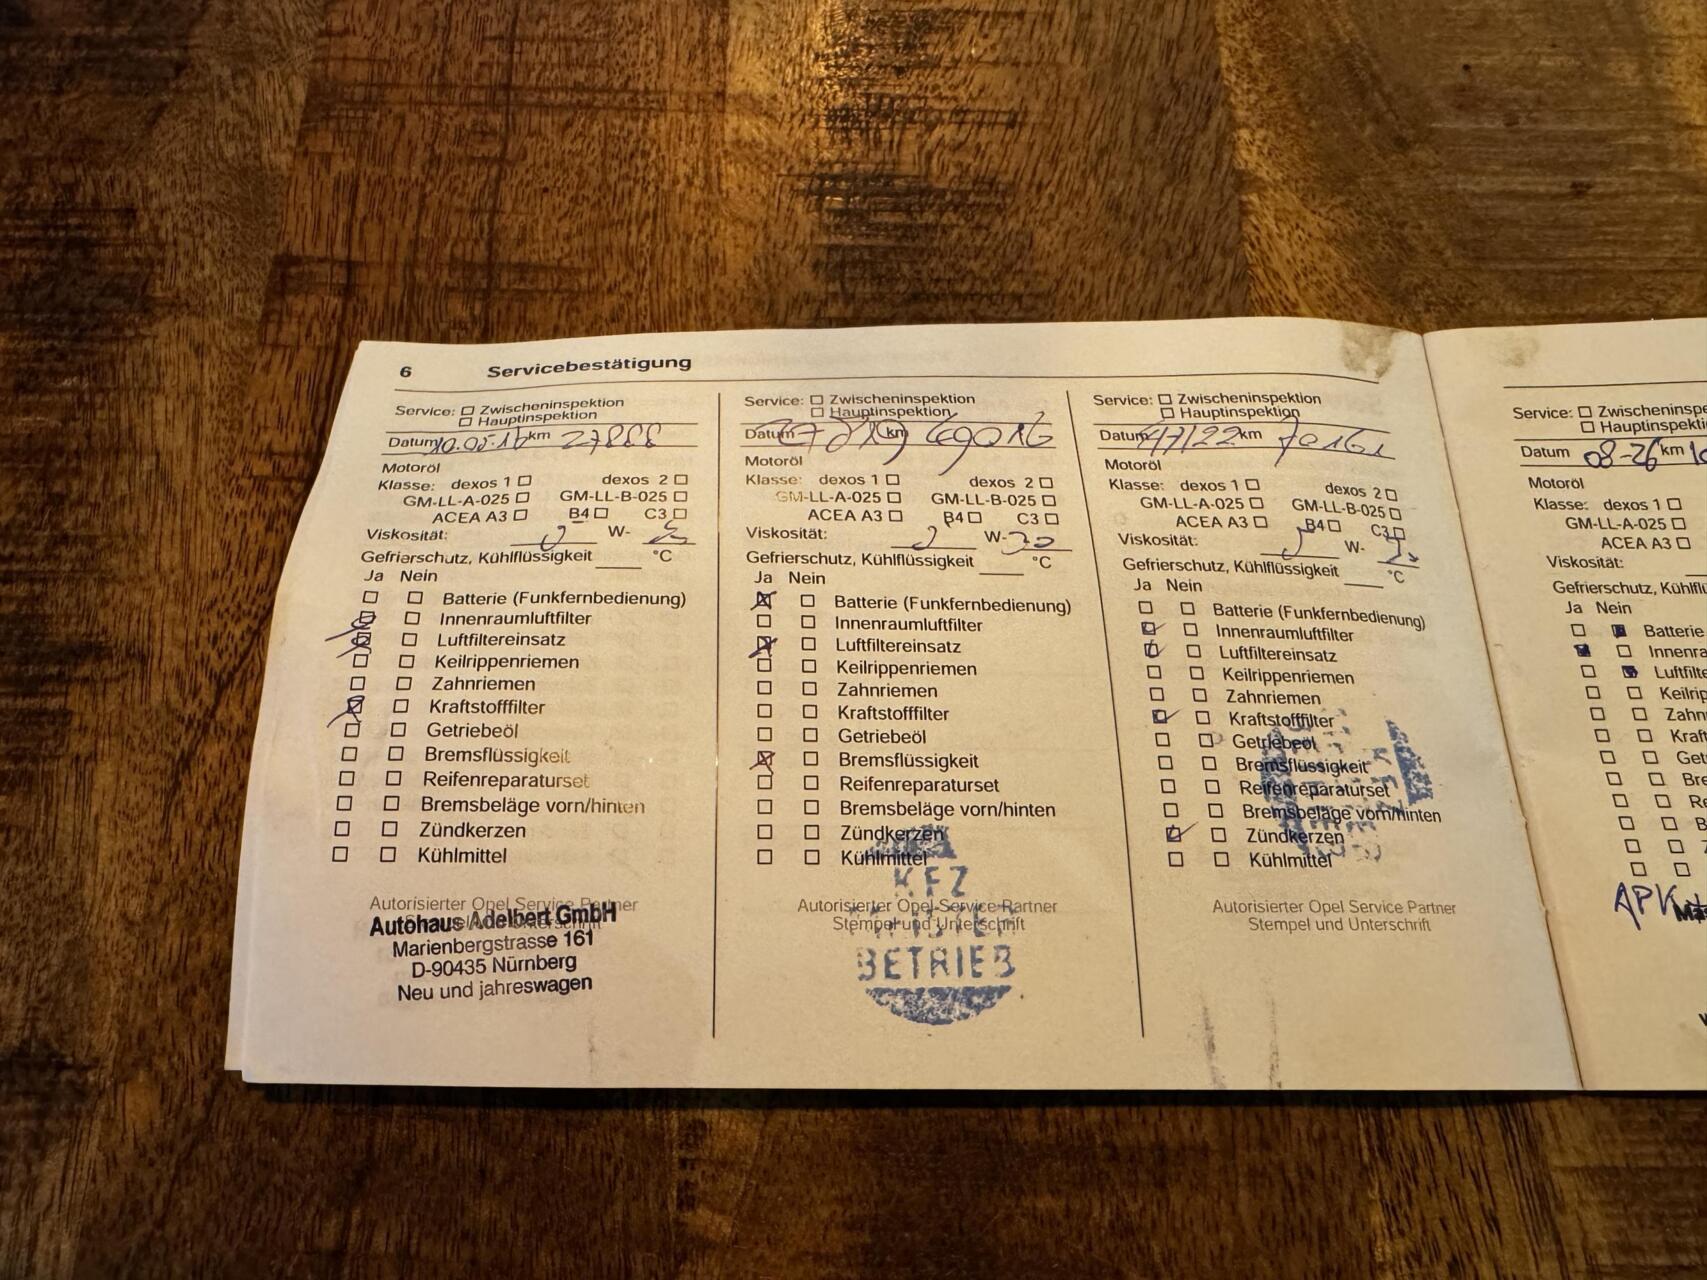 6 Servicebestätigung
Service: Zwischeninspektion
Hauptinspektion
Datum km 27888
Motoröl
Klasse: dexos 1 dexos 2
GM-LL-A-025 GM-LL-B-025
ACEA A3 B4 C3
Viskosität: W-
Gefrierschutz, Kühlflüssigkeit °C
Ja Nein
Batterie (Funkfernbedienung)
Innenraumluftfilter
Luftfiltereinsatz
Keilrippenriemen
Zahnriemen
Kraftstofffilter
Getriebeöl
Bremsflüssigkeit
Reifenreparaturset
Bremsbeläge vorn/hinten
Zündkerzen
Kühlmittel
Autorisierter Opel Service Partner
Stempel und Unterschrift
Autohaus Adelbert GmbH
Marienbergstrasse 161
D-90435 Nürnberg
Neu und jahreswagen
Service: Zwischeninspektion
Hauptinspektion
Datum km 69016
Motoröl
Klasse: dexos 1 dexos 2
GM-LL-A-025 GM-LL-B-025
ACEA A3 B4 C3
Viskosität: W-30
Gefrierschutz, Kühlflüssigkeit °C
Ja Nein
Batterie (Funkfernbedienung)
Innenraumluftfilter
Luftfiltereinsatz
Keilrippenriemen
Zahnriemen
Kraftstofffilter
Getriebeöl
Bremsflüssigkeit
Reifenreparaturset
Bremsbeläge vorn/hinten
Zündkerzen
Kühlmittel
KFZ
Autorisierter Opel Service Partner
Stempel und Unterschrift
BETRIEB
Service: Zwischeninspektion
Hauptinspektion
Datum km
Motoröl
Klasse: dexos 1 dexos 2
GM-LL-A-025 GM-LL-B-025
ACEA A3 B4 C3
Viskosität: W-
Gefrierschutz, Kühlflüssigkeit °C
Ja Nein
Batterie (Funkfernbedienung)
Innenraumluftfilter
Luftfiltereinsatz
Keilrippenriemen
Zahnriemen
Kraftstofffilter
Getriebeöl
Bremsflüssigkeit
Reifenreparaturset
Bremsbeläge vorn/hinten
Zündkerzen
Kühlmittel
Autorisierter Opel Service Partner
Stempel und Unterschrift
Service: Zwischeninspe
Hauptinspekti
Datum 08-26 km
Motoröl
Klasse: dexos 1
GM-LL-A-025
ACEA A3
Viskosität:
Gefrierschutz, Kühlflü
Ja Nein
Batterie
Innenra
Luftfilte
Keilrip
Zahn
Kraft
Get
Bre
Re
B
APK